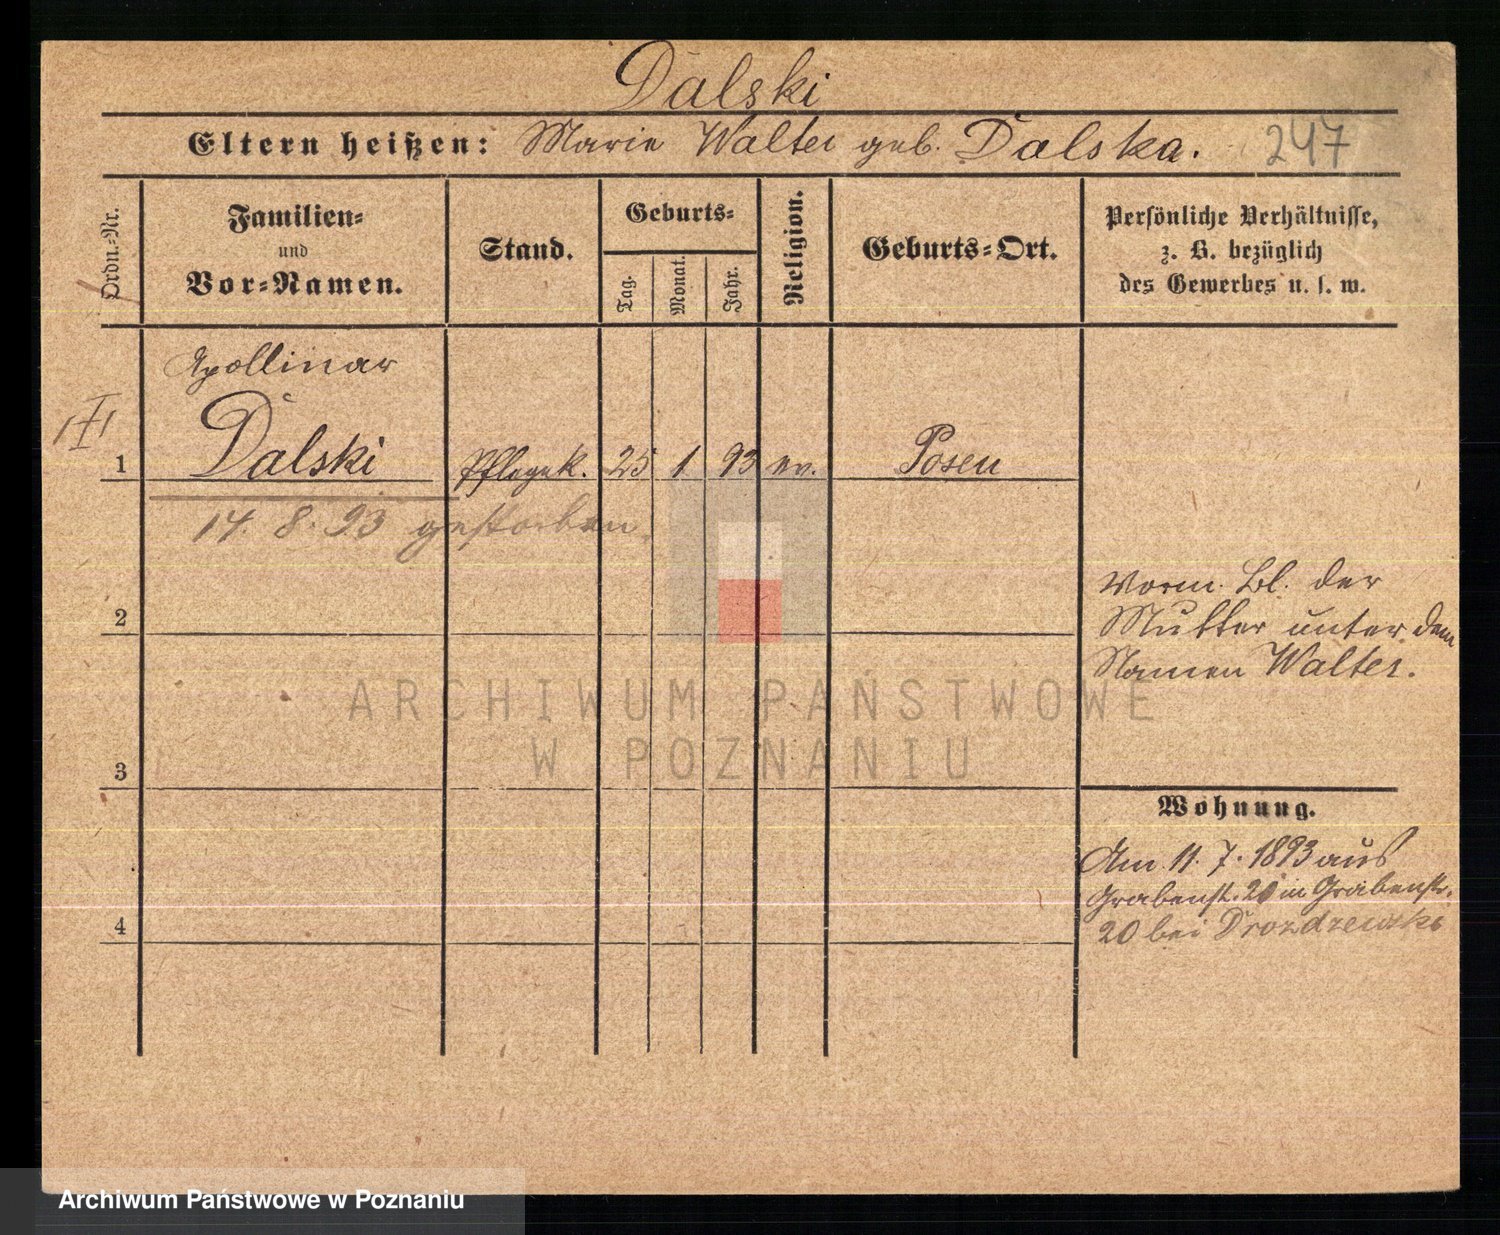 Dalski
Eltern heißen: Marie Walter geb. Dalska. 247
Ordn.-Nr.
Familien-
und
Vor-Namen.
Stand.
Geburts-
Tag.
Monat.
Jahr.
Religion.
Geburts-Ort.
Persönliche Verhältnisse,
z. B. bezüglich
des Gewerbes u. s. w.
Apollinar
1 Dalski Pflegek. 25 1 93 ev. Posen
14. 8. 93 gestorben
2
Vorm. Bl. der
Mutter unter dem
Namen Walter.
ARCHIWUM PAŃSTWOWE
W POZNANIU
3
Wohnung.
Am 11. 7. 1893 aus
Grabenst. 20 in Grabenstr.
4
20 bei Drozdzewska
Archiwum Państwowe w Poznaniu